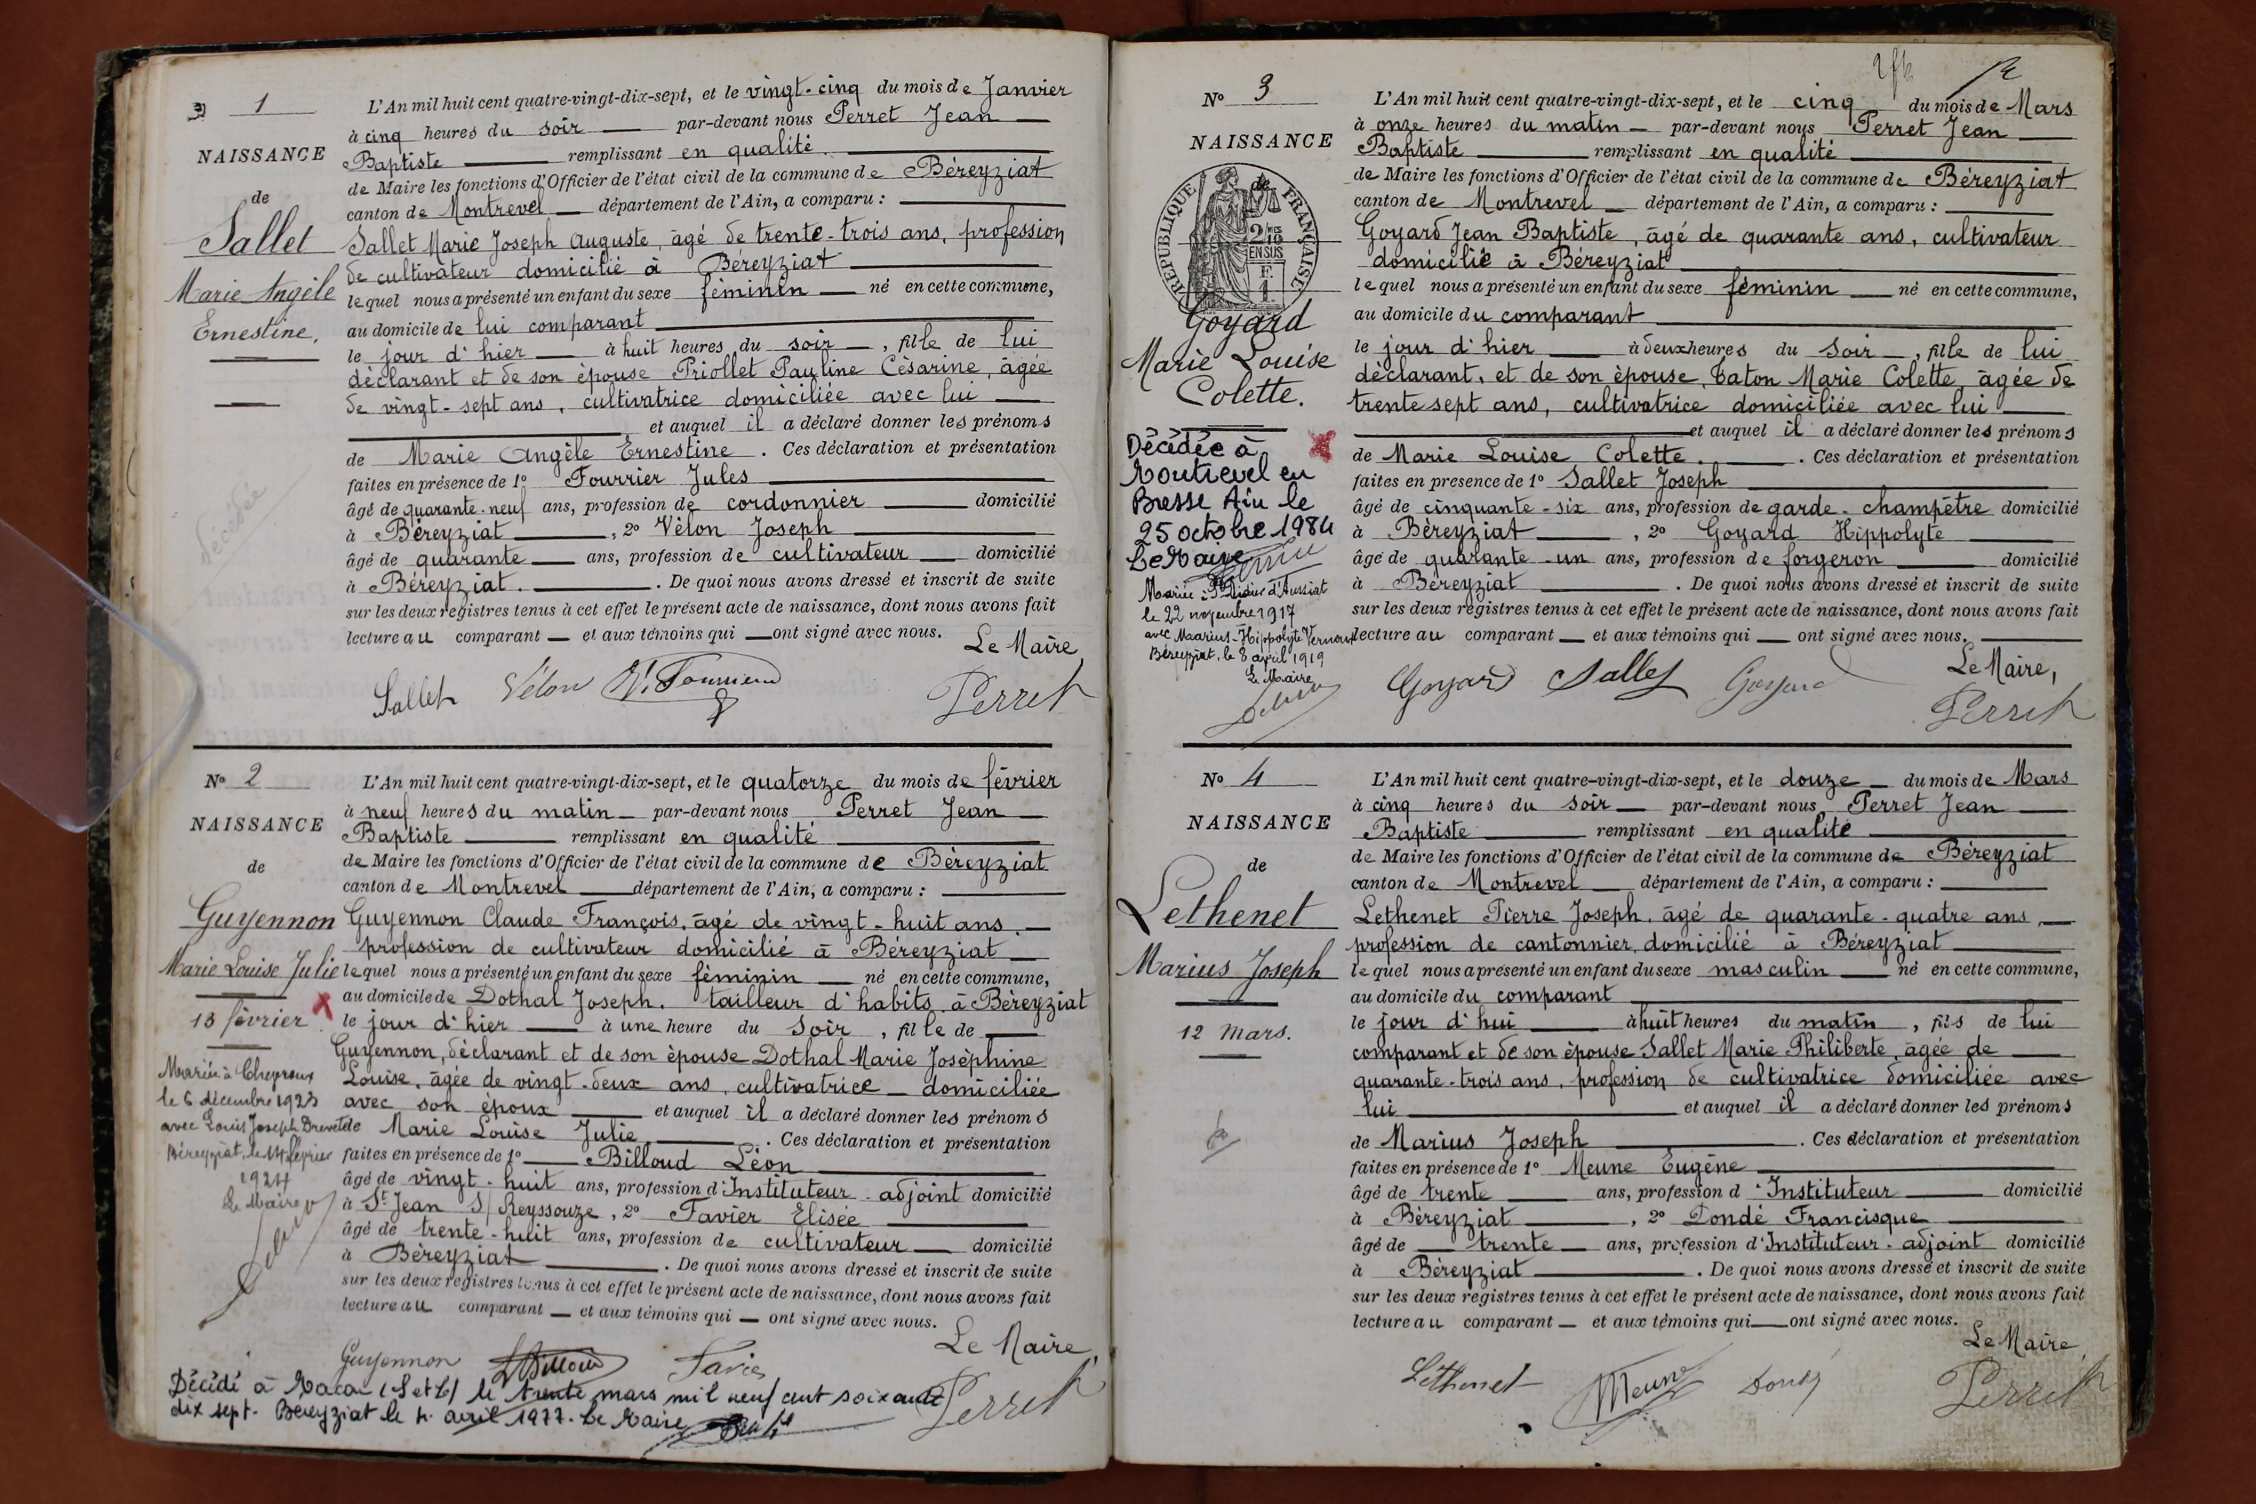 1
NAISSANCE
de
Sallet
Marie Angèle
Ernestine.
décédée
L'An mil huit cent quatre-vingt-dix-sept, et le vingt-cinq du mois de Janvier
à cinq heures du soir par-devant nous Perret Jean
Baptiste remplissant en qualité
de Maire les fonctions d'Officier de l'état civil de la commune de Béreyziat
canton de Montrevel département de l'Ain, a comparu :
Sallet Marie Joseph Auguste, âgé de trente-trois ans, profession
de cultivateur domicilié à Béreyziat
lequel nous a présenté un enfant du sexe féminin né en cette commune,
au domicile de lui comparant
le jour d'hier à huit heures du soir, fille de lui
déclarant et de son épouse Priollet Pauline Césarine, âgée
de vingt-sept ans, cultivatrice domiciliée avec lui
et auquel il a déclaré donner les prénoms
de Marie Angèle Ernestine. Ces déclaration et présentation
faites en présence de 1º Fourrier Jules
âgé de quarante-neuf ans, profession de cordonnier domicilié
à Béreyziat, 2º Vélon Joseph
âgé de quarante ans, profession de cultivateur domicilié
à Béreyziat. De quoi nous avons dressé et inscrit de suite
sur les deux registres tenus à cet effet le présent acte de naissance, dont nous avons fait
lecture au comparant et aux témoins qui ont signé avec nous.
Le Maire
Sallet Vélon Fourrier Perret
Nº 2
NAISSANCE
de
Guyennon
Marie Louise Julie
13 février
Mariée à Chevroux
le 6 décembre 1923
avec Louis Joseph Drevet
Béreyziat, le 14 février
1924
Le Maire
L'An mil huit cent quatre-vingt-dix-sept, et le quatorze du mois de février
à neuf heures du matin par-devant nous Perret Jean
Baptiste remplissant en qualité
de Maire les fonctions d'Officier de l'état civil de la commune de Béreyziat
canton de Montrevel département de l'Ain, a comparu :
Guyennon Claude François, âgé de vingt-huit ans,
profession de cultivateur domicilié à Béreyziat
lequel nous a présenté un enfant du sexe féminin né en cette commune,
au domicile de Dothal Joseph, tailleur d'habits à Béreyziat
le jour d'hier à une heure du soir, fille de
Guyennon, déclarant et de son épouse Dothal Marie Joséphine
Louise, âgée de vingt-deux ans, cultivatrice domiciliée
avec son époux et auquel il a déclaré donner les prénoms
de Marie Louise Julie. Ces déclaration et présentation
faites en présence de 1º Billoud Léon
âgé de vingt-huit ans, profession d'Instituteur-adjoint domicilié
à St Jean S/ Reyssouze, 2º Favier Elisée
âgé de trente-huit ans, profession de cultivateur domicilié
à Béreyziat. De quoi nous avons dressé et inscrit de suite
sur les deux registres tenus à cet effet le présent acte de naissance, dont nous avons fait
lecture au comparant et aux témoins qui ont signé avec nous.
Le Maire,
Guyennon Billoud Favier Perret
Décédé à Macon (S et L) le trente mars mil neuf cent soixante
dix sept. Béreyziat le 4 avril 1977. Le Maire
Nº 3
NAISSANCE
de
RÉPUBLIQUE FRANÇAISE
2/10
EN SUS
Goyard
Marie Louise
Colette.
Décédée à
Montrevel en
Bresse Ain le
25 octobre 1984
Le Maire
Mariée à St Didier d'Aussiat
le 22 novembre 1917
avec Maarius-Hippolyte Vernoux
Béreyziat, le 8 avril 1919
Le Maire
L'An mil huit cent quatre-vingt-dix-sept, et le cinq du mois de Mars
à onze heures du matin par-devant nous Perret Jean
Baptiste remplissant en qualité
de Maire les fonctions d'Officier de l'état civil de la commune de Béreyziat
canton de Montrevel département de l'Ain, a comparu :
Goyard Jean Baptiste, âgé de quarante ans, cultivateur
domicilié à Béreyziat
lequel nous a présenté un enfant du sexe féminin né en cette commune,
au domicile du comparant
le jour d'hier à deux heures du soir, fille de lui
déclarant, et de son épouse, Caton Marie Colette, âgée de
trente sept ans, cultivatrice domiciliée avec lui
et auquel il a déclaré donner les prénoms
de Marie Louise Colette. Ces déclaration et présentation
faites en présence de 1º Sallet Joseph
âgé de cinquante-six ans, profession de garde-champêtre domicilié
à Béreyziat, 2º Goyard Hippolyte
âgé de quarante-un ans, profession de forgeron domicilié
à Béreyziat. De quoi nous avons dressé et inscrit de suite
sur les deux registres tenus à cet effet le présent acte de naissance, dont nous avons fait
lecture au comparant et aux témoins qui ont signé avec nous.
Le Maire,
Goyard Sallet Goyard Perret
Nº 4
NAISSANCE
de
Lethenet
Marius Joseph
12 mars.
L'An mil huit cent quatre-vingt-dix-sept, et le douze du mois de Mars
à cinq heures du soir par-devant nous Perret Jean
Baptiste remplissant en qualité
de Maire les fonctions d'Officier de l'état civil de la commune de Béreyziat
canton de Montrevel département de l'Ain, a comparu :
Lethenet Pierre Joseph, âgé de quarante-quatre ans,
profession de cantonnier, domicilié à Béreyziat
lequel nous a présenté un enfant du sexe masculin né en cette commune,
au domicile du comparant
le jour d'hui à huit heures du matin, fils de lui
comparant et de son épouse Sallet Marie Philiberte, âgée de
quarante-trois ans, profession de cultivatrice domiciliée avec
lui et auquel il a déclaré donner les prénoms
de Marius Joseph. Ces déclaration et présentation
faites en présence de 1º Meune Eugène
âgé de trente ans, profession d'Instituteur domicilié
à Béreyziat, 2º Dondé Francisque
âgé de trente ans, profession d'Instituteur-adjoint domicilié
à Béreyziat. De quoi nous avons dressé et inscrit de suite
sur les deux registres tenus à cet effet le présent acte de naissance, dont nous avons fait
lecture au comparant et aux témoins qui ont signé avec nous.
Le Maire,
Lethenet Meune Dondé Perret